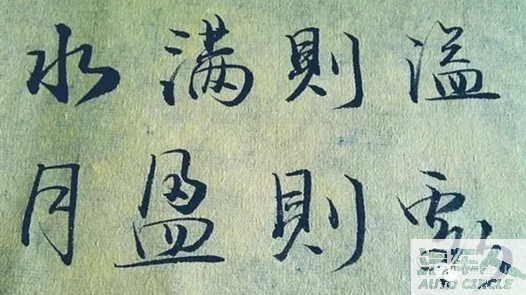 水满則溢
月盈則虧
AUTO CIRCLE